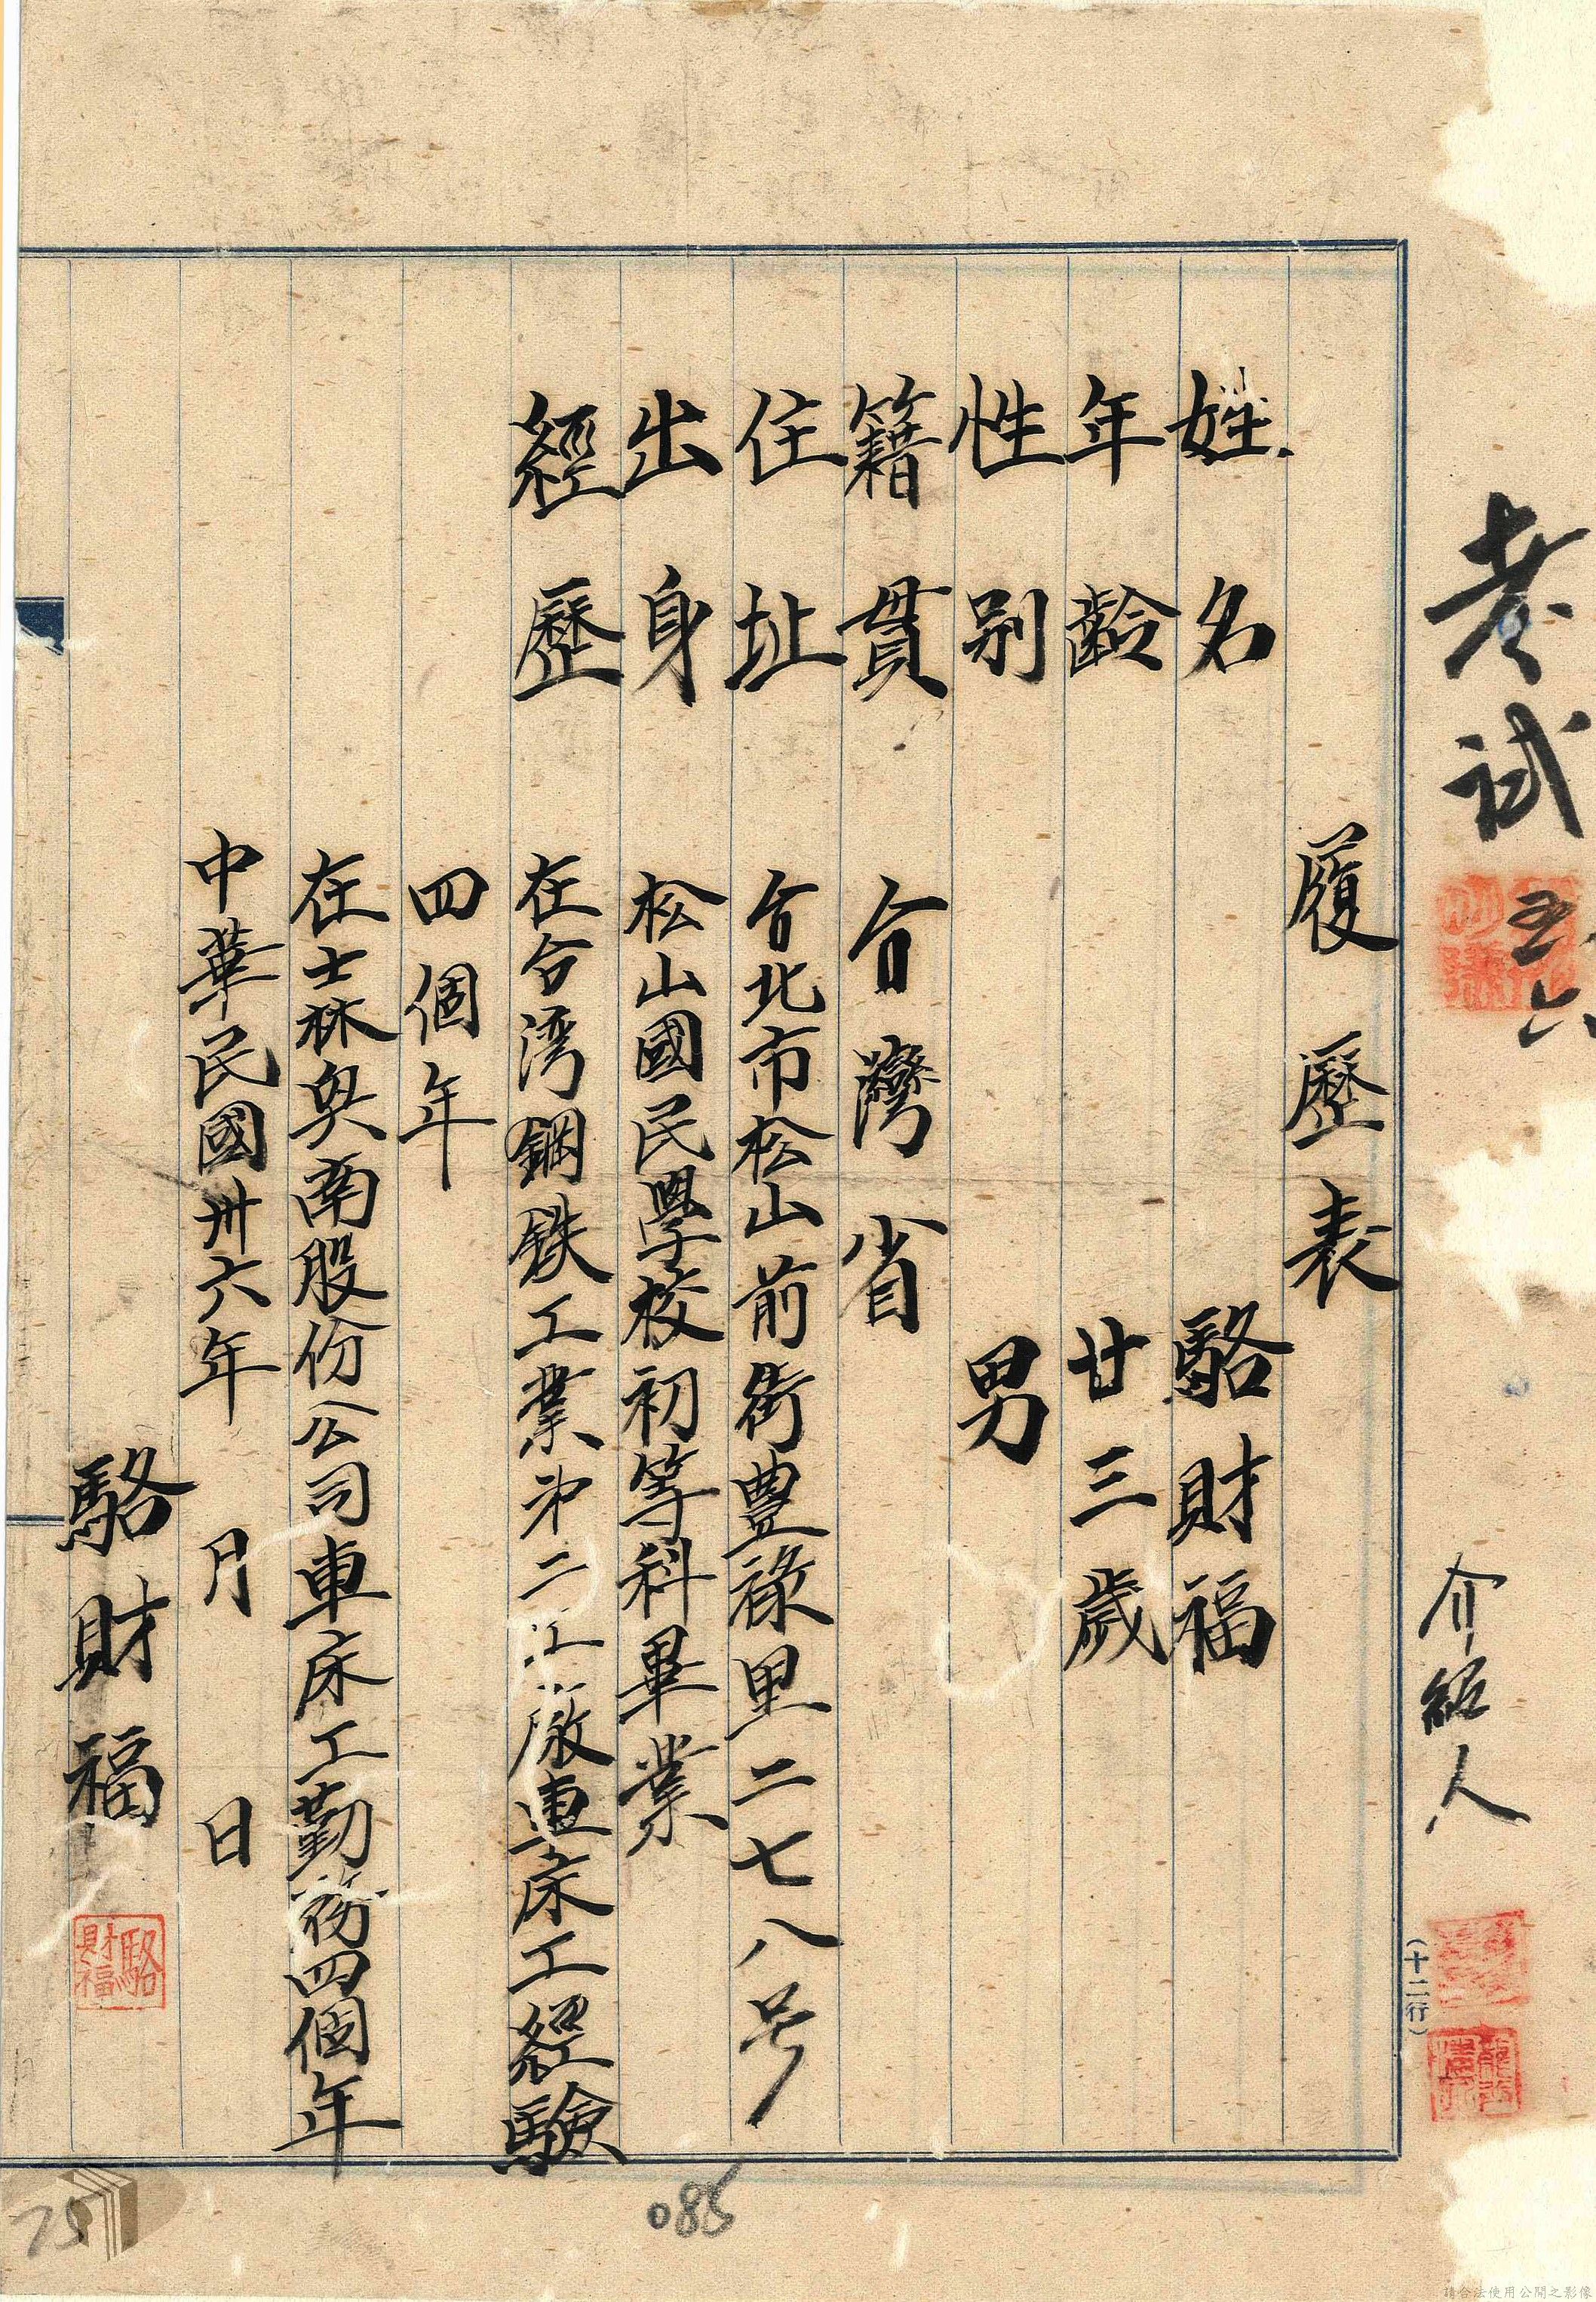 考試
五六
介紹人
(十二行)
履歷表
姓名 駱財福
年齡 廿三歲
性別 男
籍貫 台灣省
住址 台北市松山前街豊祿里二七八号
出身 松山國民學校初等科畢業
經歷 在台湾鋼鉄工業第二工廠車床工經驗
四個年
在士林奥南股份公司車床工勤務四個年
中華民國卅六年 月 日
駱財福
駱財福
085
75
請合法使用公開之影像